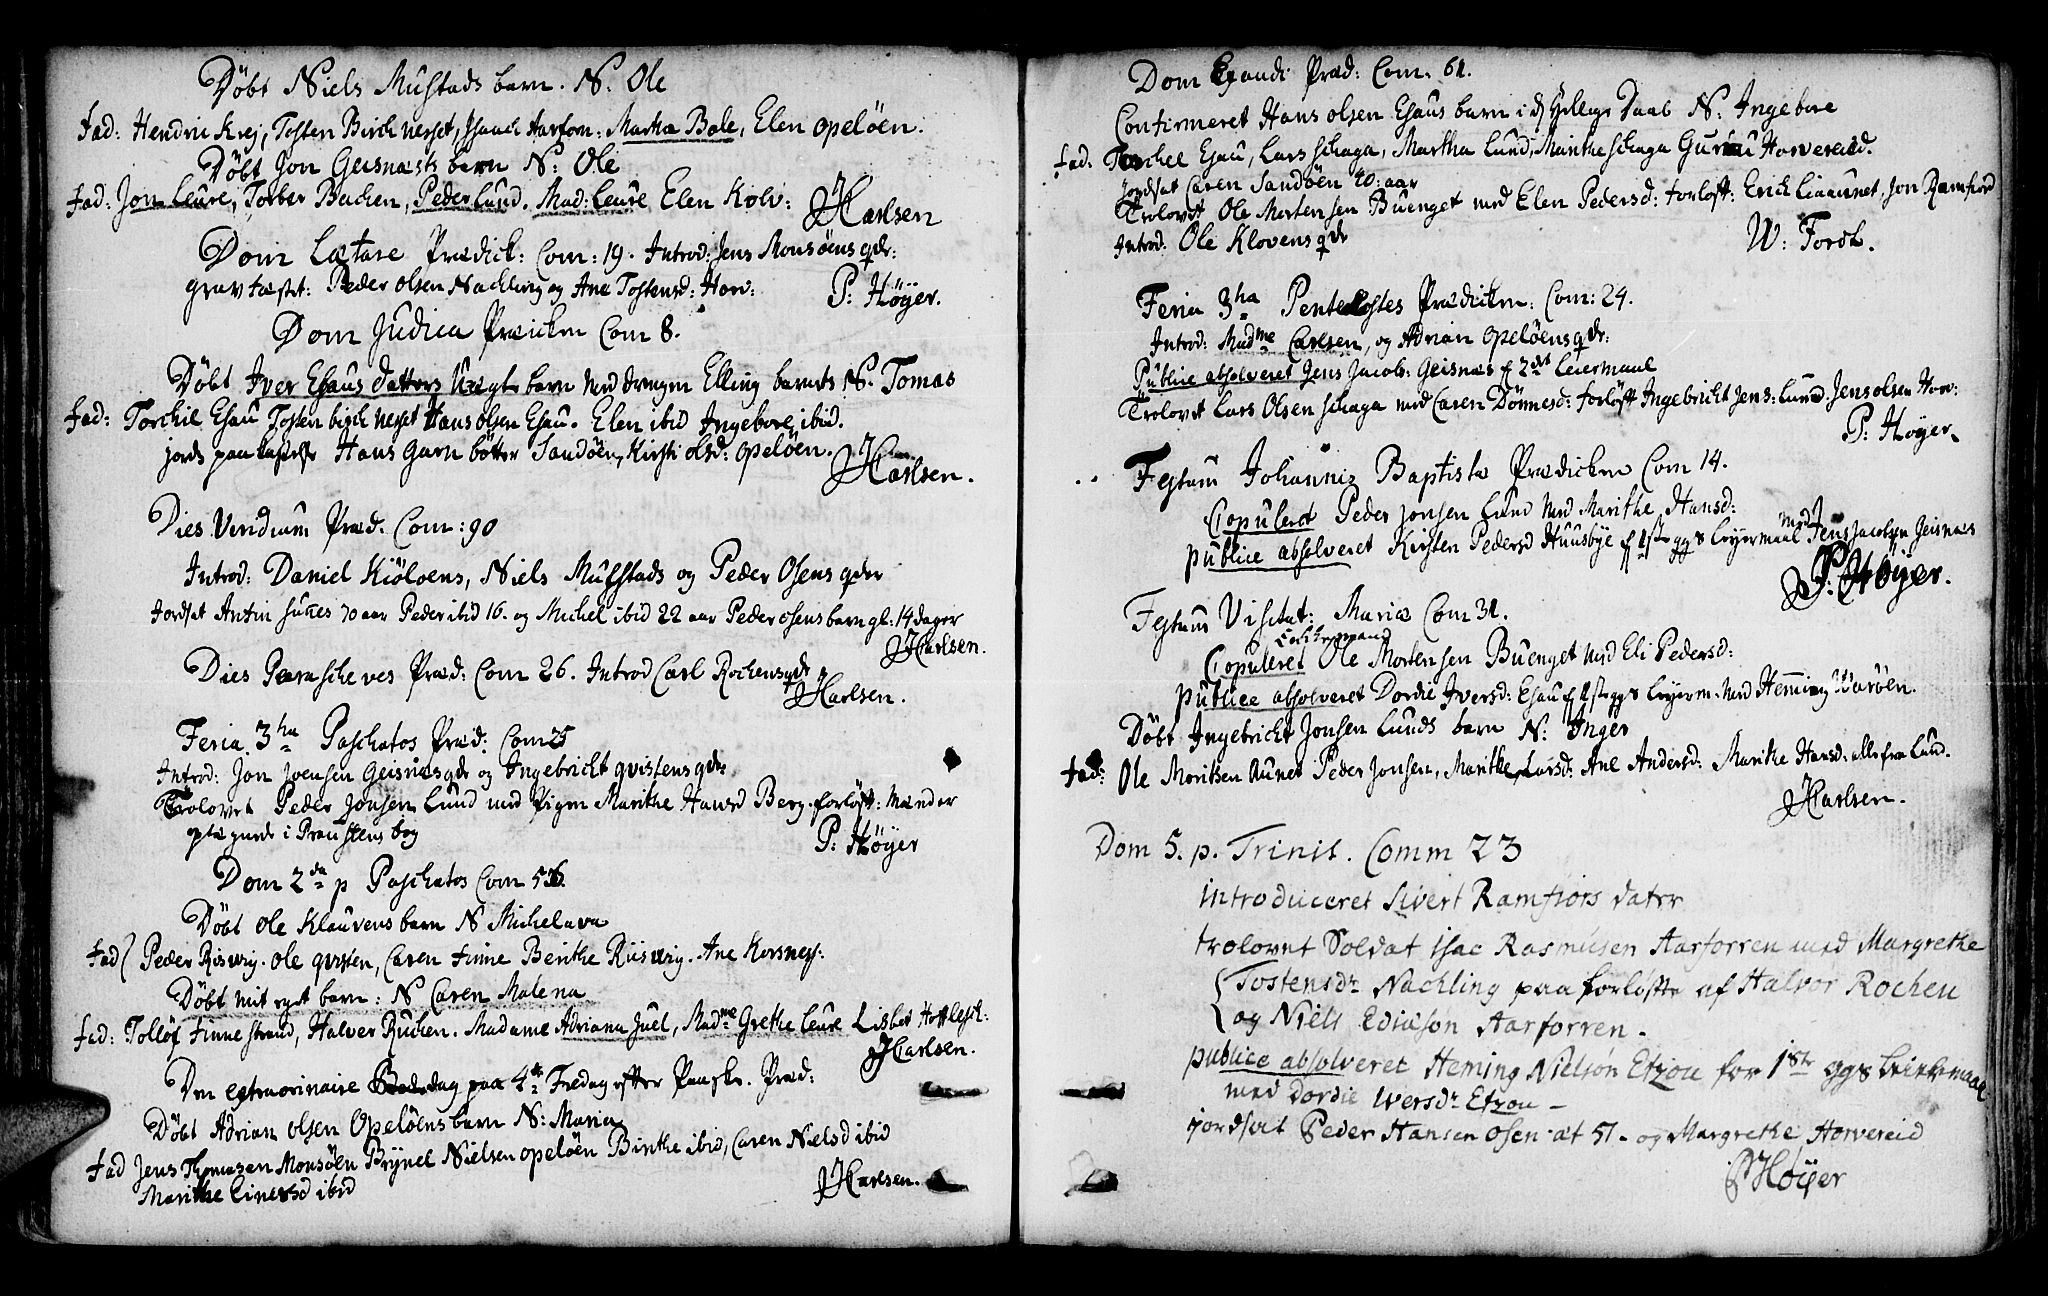 Döbt Niels Mustads barn. N. Ole
Fad: Hendric Krej, Tosten Birch nesset, Isaach Aarforn: Martha Bale, Elen opelöen.
Döbt Jon Geisnæsts barn N: Ole
Fad: Jon Leure, Torber Buchen, Peder Lund. Mad: Leure Elen Kolv:
JCarlsen
Dom Lætare Prædick: Com: 19. Introd: Jens Monsöens qde:
grav fæstet: Peder olsen Nachling og Ane Tostensd: Horv:
P: Höyer.
Dom Judica Præicken Com 8.
Döbt Iver Esaus datters Uægte barn med drengen Elling barnets N. Tomas
Fad: Torchil Esau Tosten birch nesset Hans olsen Esau. Elen ibid Ingebore ibid.
jords paa kastelse Hans Garn bötter Sandöen, Kirsti olsd: opelöen.
JCarlsen.
Dies Viridium Præd. Com: 90
Introd: Daniel Kiöloens, Niels Mustads og Peder Osens qder
Jordsat Antin 70 aar Peder ibid 16. og Michel ibid 22 aar Peder osens barn gl: 14 dager
JCarlsen.
Dies Parascheves Præd: Com 26. Introd Carl Rochens qde
JCarlsen.
Feria 3tia Paschatos Præd: Com 25
Introd: Jon Joensen Geisnæs qde og Ingebricht qvistens qde
Trolovet Peder Jonsen Lund med Pigen Marithe Hansd Berg. forlöft: Mænd er
optegnede i Proustens bog
P: Höyer
Dom 2da p Paschatos Com 56.
Döbt Ole Klauvens barn N Michelava
Fad ( Peder Risvig. ole qvisten, Caren Finne Berithe Riisvig. Ane Korsness:
Döbt mit eget barn: N Caren Malena
Fad: Tollöf Finne strand, Halver Ruchen. Madame Adriana Juel, Madme Grethe Leure Lisbet Hottlesch:
JCarlsen.
Den extraorinaire Bededag paa 4de Fredag efter Paaske. Præd:
Döbt Adrian olsen Opelöens barn N: Maria
Fad Jens Thomæsen Monsöen Brynel Nielsen opelöen Birithe ibid, Caren Nielsd ibid
Marithe Einersd ibid
JCarlsen.
Dom Exaudi Præd: Com. 61.
Confirmeret Hans olsen Esaus barn i d Hellige Daab N. Ingebore
Fad. Torchel Esau, Lars schaga, Martha Lund, Marithe schaga Guru Horvereid.
Jordsat Caren Sandöen 40: aar
Trolovet Ole Mortensen Buenget med Elen Pedersd: forloft: Erich Liaaunet, Jon Ramfiord
Introd: Ole Klovens qde
W: Forch.
Feria 3tia Pentecostes Prædicken: Com: 24.
Introd: Madme Carlsen, og Adrian opelöens qde:
Publice absolveret Jens Jacobs: Geisnæs f 2det Leiermaal
Trolovet Lars Olsen schaga med Caren Dönnesd: forlöft Ingebricht Jens: Lund. Jens olsen Horv:
P: Höyer.
Festum Johannis Baptistæ Prædicken Com 14.
Copulerd Peder Jonsen Lund med Marithe Hansd:
publice absolveret Kirsten Pedersd Huusbye f 1ste gg s Leyermaal med Jens Jacobsen Geisnæs
P: Höyer.
Festum Visitat: Mariæ Com 31.
Copuleret Ole Mortensen Buenget med Eli Pedersd:
publice absolveret Dordie Iversd: Esau f 1ste gg s Leyerm. med Heming Varöen.
Döbt Ingebricht Jonsen Lunds barn N: Inger
Fad: Ole Moritsen Aunet Peder Jonsen, Marithe Larsd: Ane Andersd: Marithe Hansd: alle fra Lund.
JCarlsen.
Dom 5. p. Trinit. Comm 23
introduceret Sivert Ramfiors dater
trolovet Soldat Isac Rasmusen Aarforren med Margrethe
Tostensdr Nachling paa forløfte af Halvor Rochen
og Niels Ediasøn Aarforren.
publice absolveret Heming Nielsøn Etzou for 1ste ggs leiermaal
med Dordie Iversdr Etzou
jordsvit Peder Hansen Osen æt 51. og Margrethe Horvereid
PHöyer